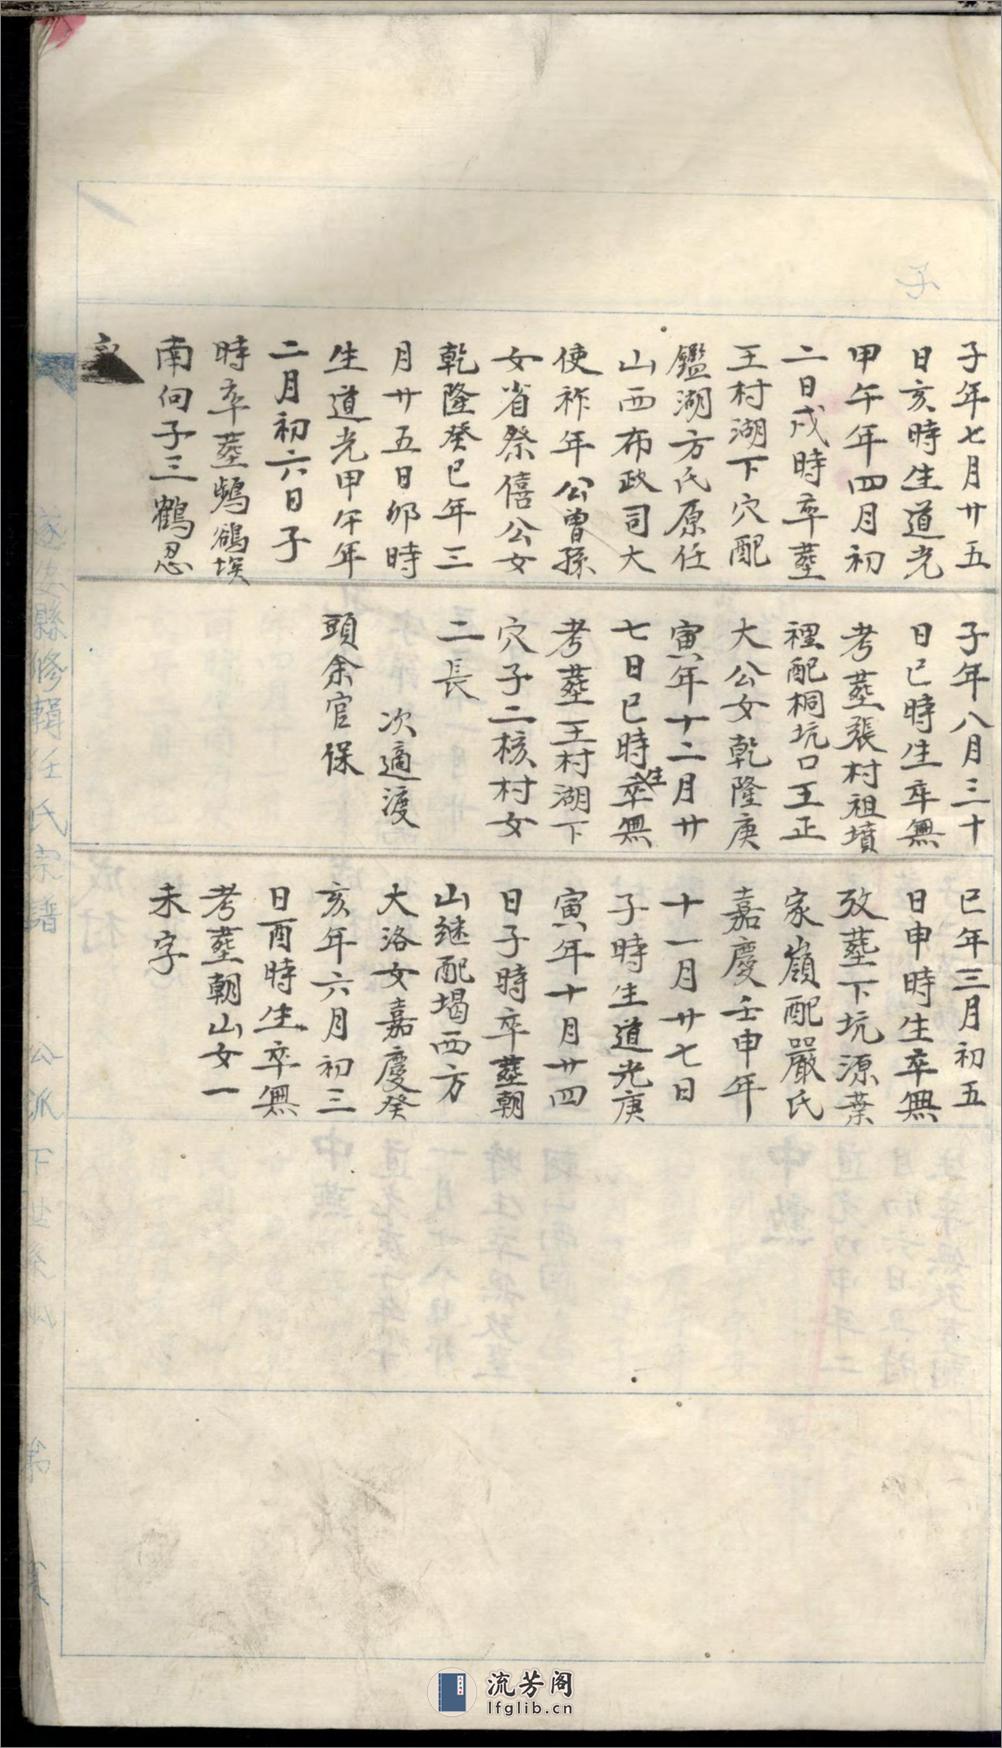 子年七月廿五
日亥時生道光
甲午年四月初
二日戌時卒塟
王村湖下穴配
鑑湖方氏原任
山西布政司大
使祚年公曾孫
女省祭僖公女
乾隆癸巳年三
月廿五日卯時
生道光甲午年
二月初六日子
時卒塟鵓鴿埃
南向子三鶴忍
子年八月三十
日巳時生卒無
考塟張村祖墳
裡配桐坑口王正
大公女乾隆庚
寅年十二月廿
七日巳時卒生無
考塟王村湖下
穴子二核村女
二長
次適渡
頭余官保
巳年三月初五
日申時生卒無
攷塟下坑源葉
家嶺配嚴氏
嘉慶壬申年
十一月廿七日
子時生道光庚
寅年十月廿四
日子時卒塟朝
山継配堨西方
大洛女嘉慶癸
亥年六月初三
日酉時生卒無
考塟朝山女一
未字
遂安縣修輯任氏宗譜 公派下世系 第 頁
流芳阁
lfglib.cn